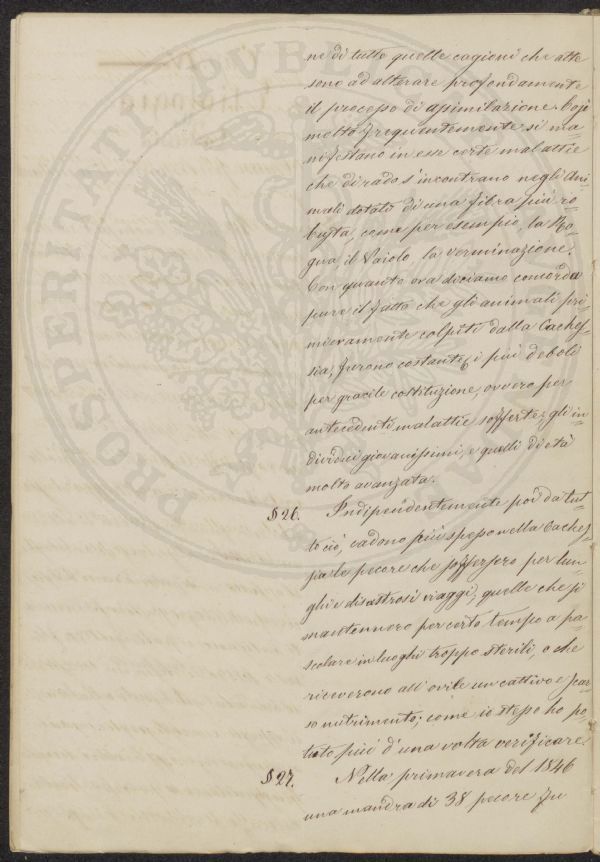 ne di tutte quelle cagioni che atte
sono ad alterare profondamente
il processo di assimilazione. Così
molto frequentemente si ma=
nifestano in esse certe malattie
che di rado s'incontrano negli Ani=
mali dotati di una fibra più ro=
busta, come per esempio, la Ro=
gna, il Vaiolo la verminazione.
Con quanto ora diciamo concorda
pure il fatto che gli animali pri=
mieramente colpiti dalla Caches=
sia, furono costante i più deboli
per gracile costituzione, ovvero per
antecedenti malattie sofferte; gli in=
dividui giovanissimi, e quelli di età
molto avanzata.
§ 26. Indipendentemente poi da tut=
to ciò, cadono più spesso nella Caches=
sia le pecore che soffersero per lun=
ghi e disastrosi viaggi, quelle che si
mantennero per certo tempo a pa=
scolare in luoghi troppo sterili, o che
riceverono all'ovile un cattivo e scar=
so nutrimento; come io stesso ho po=
tuto più d'una volta verificare.
§ 27. Nella primavera del 1846
una mandra di 38 pecore fu
PROSPERITATI PUBLICAE